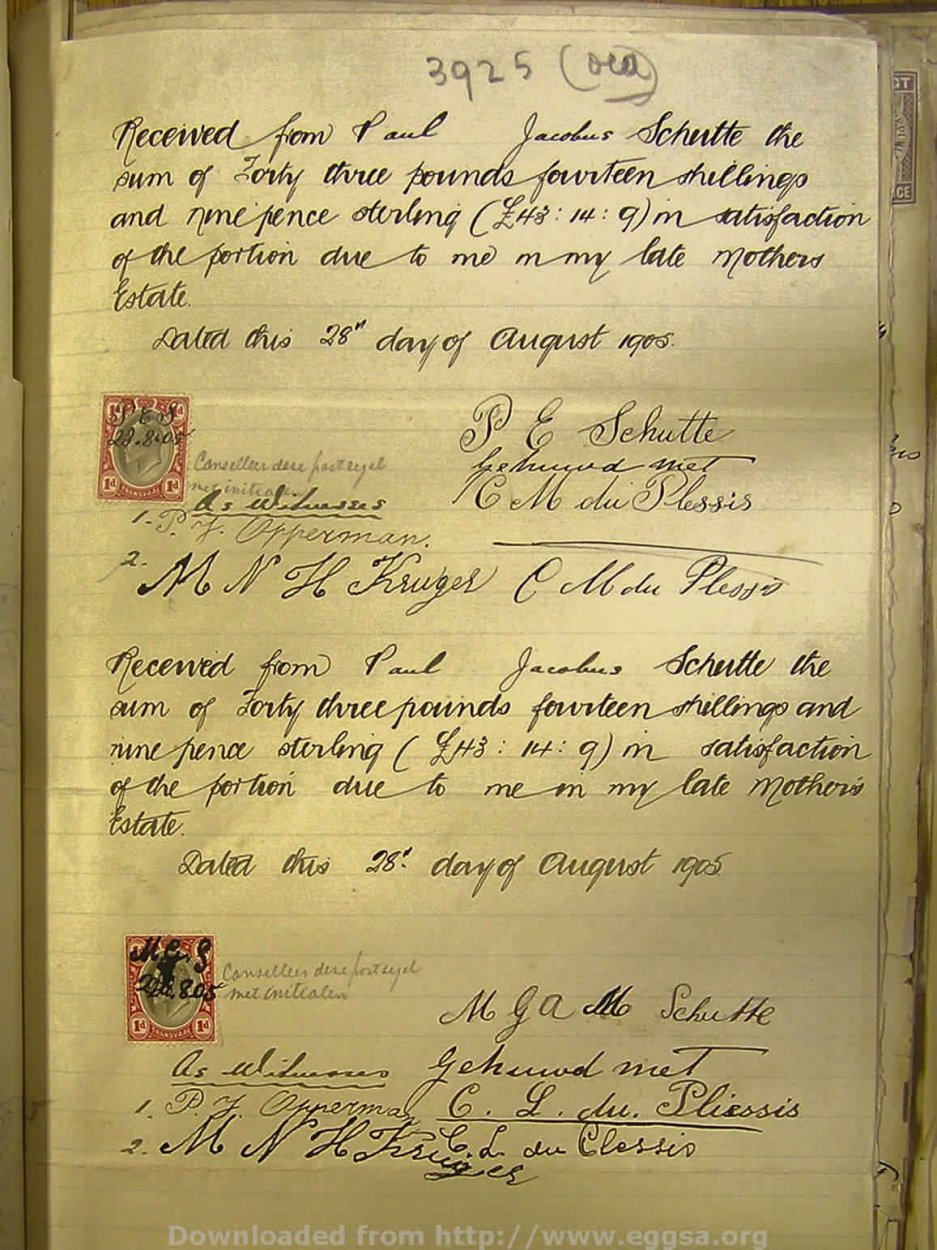 3925 (oea)
Received from Paul Jacobus Schutte the
sum of Forty three pounds fourteen shillings
and nine pence sterling (£43:14:9) in satisfaction
of the portion due to me in my late Mothers
Estate.
Dated this 28" day of August 1905.
P E S
28.8.05
1d 1d
TRANSVAAL
1d 1d
P E Schutte
Gehuwd met
C M du Plessis
Canselleer deze postzegel
met initialen
As Witnesses
1. P. J. Opperman.
2. M N H Kruger
C M du Plessis
Received from Paul Jacobus Schutte the
sum of Forty three pounds fourteen shillings and
nine pence sterling (£43:14:9) in satisfaction
of the portion due to me in my late Mother's
Estate.
Dated this 28' day of August 1905
28.8.05
1d 1d
TRANSVAAL
Canselleer deze postzegel
met initialen
M G A M Schutte
Gehuwd met
C. L. du. Pliessis
As Witnesses
1. P. J. Opperman
2. M N H Kruger
C. L. du Plessis
Downloaded from http://www.eggsa.org